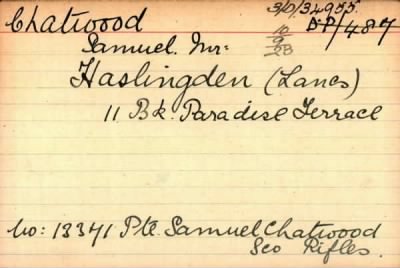 Chatwood 3/0/34955
Samuel. Mr: 10/9/23 DP/487
Haslingden (Lancs)
11 Bk. Paradise Terrace
No: 13341 Pte. Samuel Chatwood
Sco Rifles.